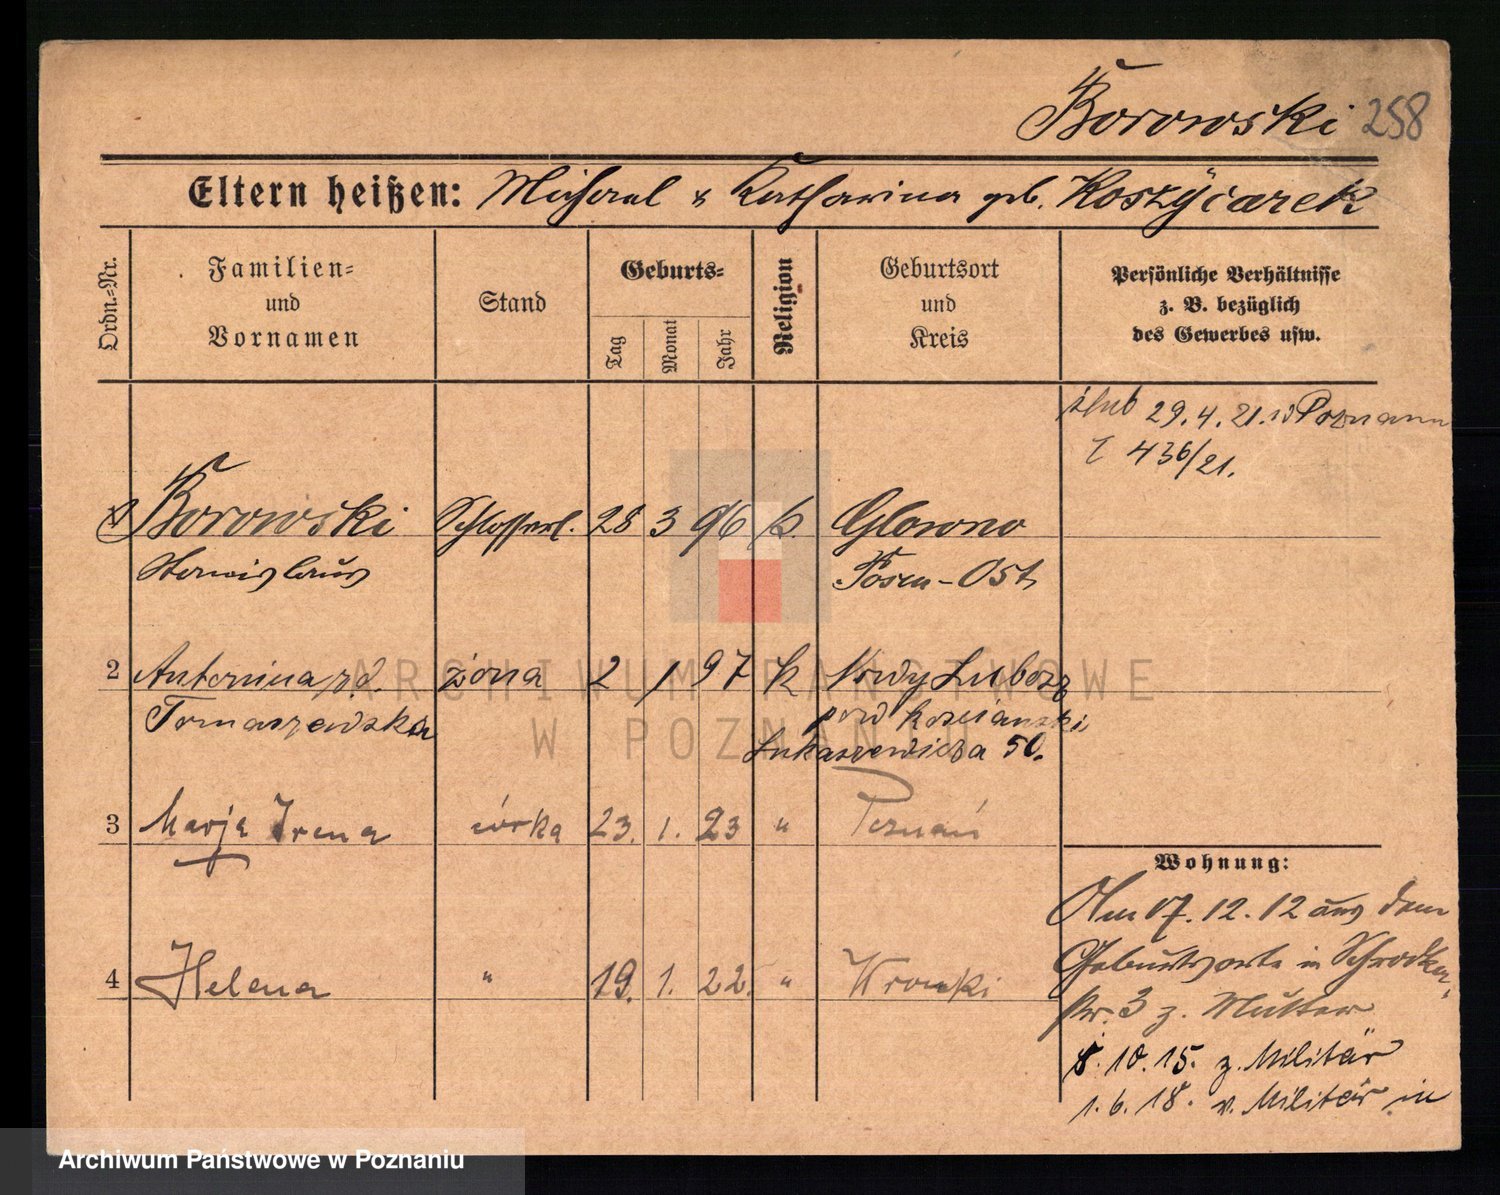 Borowski 258
Eltern heißen: Michael & Katharina geb. Koszyczarek
Ordn.=Nr.
Familien=
und
Vornamen
Stand
Geburts=
Tag
Monat
Jahr
Religion
Geburtsort
und
Kreis
Persönliche Verhältnisse
z. B. bezüglich
des Gewerbes usw.
ślub 29.4.21. w Poznaniu
436/21.
1 Borowski Schlosserl. 28 3 96 k. Glowno
Stanislaus Posen-Ost
2 Antonina żona 2 1 97 k Nowy Lubosz
Tomaszewska pow kościański
Łukaszewicza 50.
3 Marja Irena córka 23. 1. 23 " Poznań
4 Helena " 19. 1. 22. " Wronki
Wohnung:
Am 17.12.12 aus dem
Geburtsorte in
Str. 3 z. Mutter
8.10.15. z. Militär
1.6.18. v. Militär in
ARCHIWUM PAŃSTWOWE
W POZNANIU
Archiwum Państwowe w Poznaniu